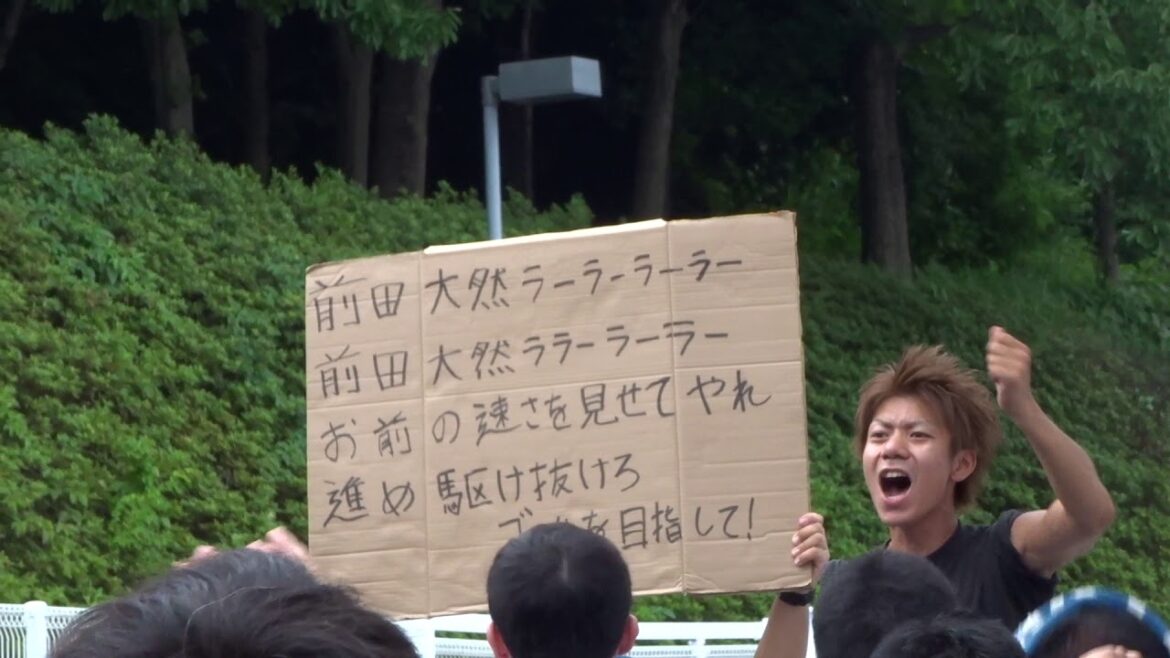 前田 大然ラーラーラーラー
前田 大然ララーラーラー
お前の速さを見せてやれ
進め駆け抜けろ
を目指して!